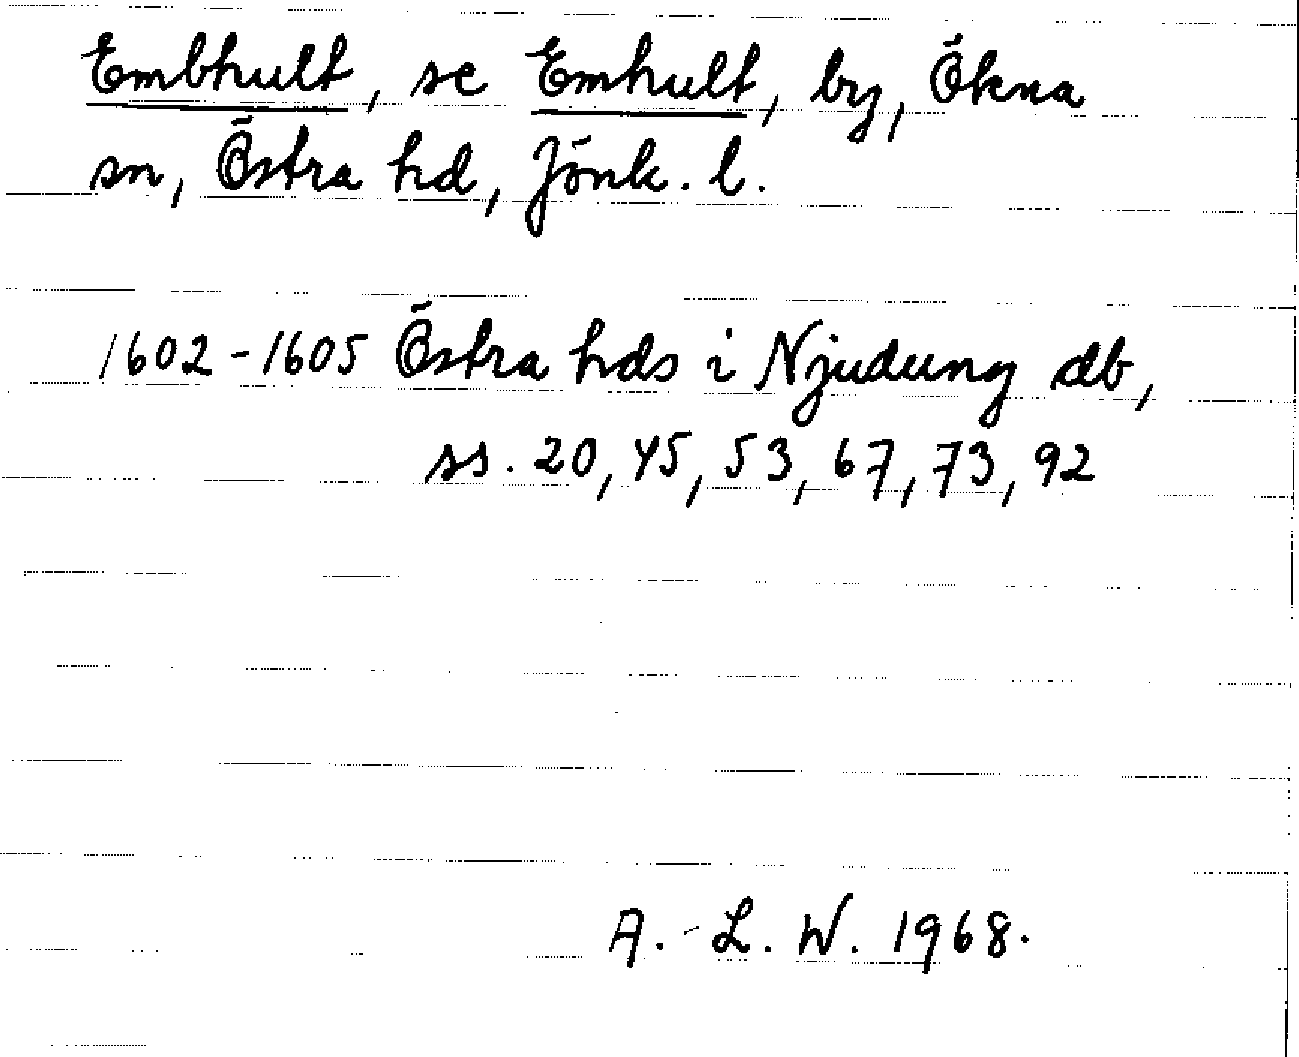 Embhult, se Emhult, by, Ökna
sn, Östra hd, Jönk. l.
1602-1605 Östra hds i Njudung db,
ss. 20, 45, 53, 67, 73, 92
A.-L. W. 1968.